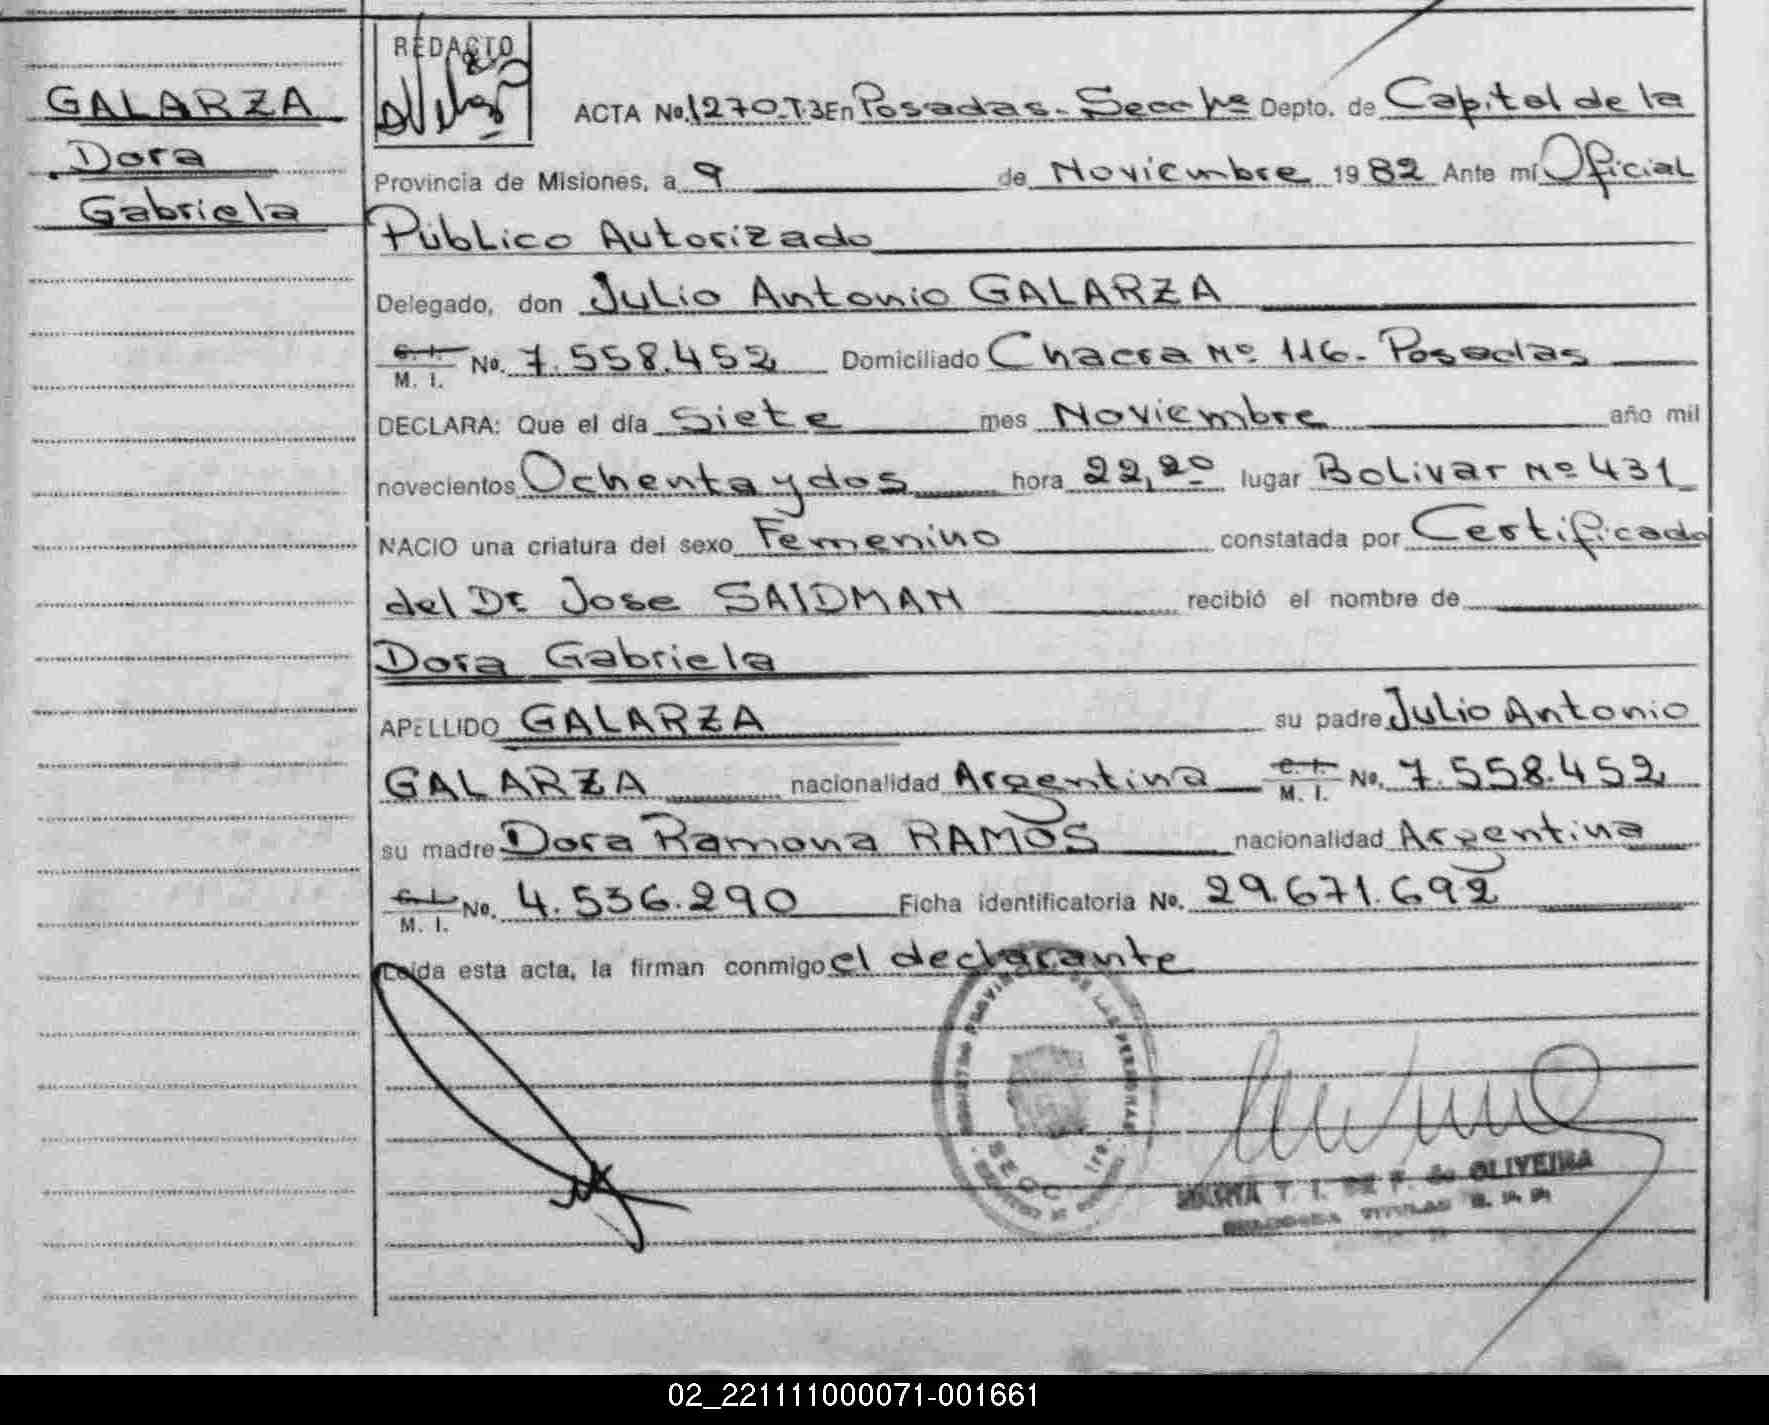 GALARZA
Dora
Gabriela
REDACTO
ACTA No. 1270-T3 En Posadas - Secc 1ra Depto. de Capital de la
Provincia de Misiones, a 9 de Noviembre 1982 Ante mí Oficial
Público Autorizado
Delegado, don Julio Antonio GALARZA
C. I.
M. I. No. 7.558.452 Domiciliado Chacra Nº 116 - Posadas
DECLARA: Que el día Siete mes Noviembre año mil
novecientos Ochenta y dos hora 22,20 lugar Bolivar Nº 431
NACIO una criatura del sexo Femenino constatada por Certificado
del Dr. Jose SAIDMAN recibió el nombre de
Dora Gabriela
APELLIDO GALARZA su padre Julio Antonio
GALARZA nacionalidad Argentina C. I.
M. I. No. 7.558.452
su madre Dora Ramona RAMOS nacionalidad Argentina
C. I.
M. I. No. 4.536.290 Ficha identificatoria No. 29.671.692
Leída esta acta, la firman conmigo el declarante
DE LAS PERSONAS
SECC. 1ra.
MARIA T. I. DE F. de OLIVEIRA
TITULAR
02_221111000071-001661